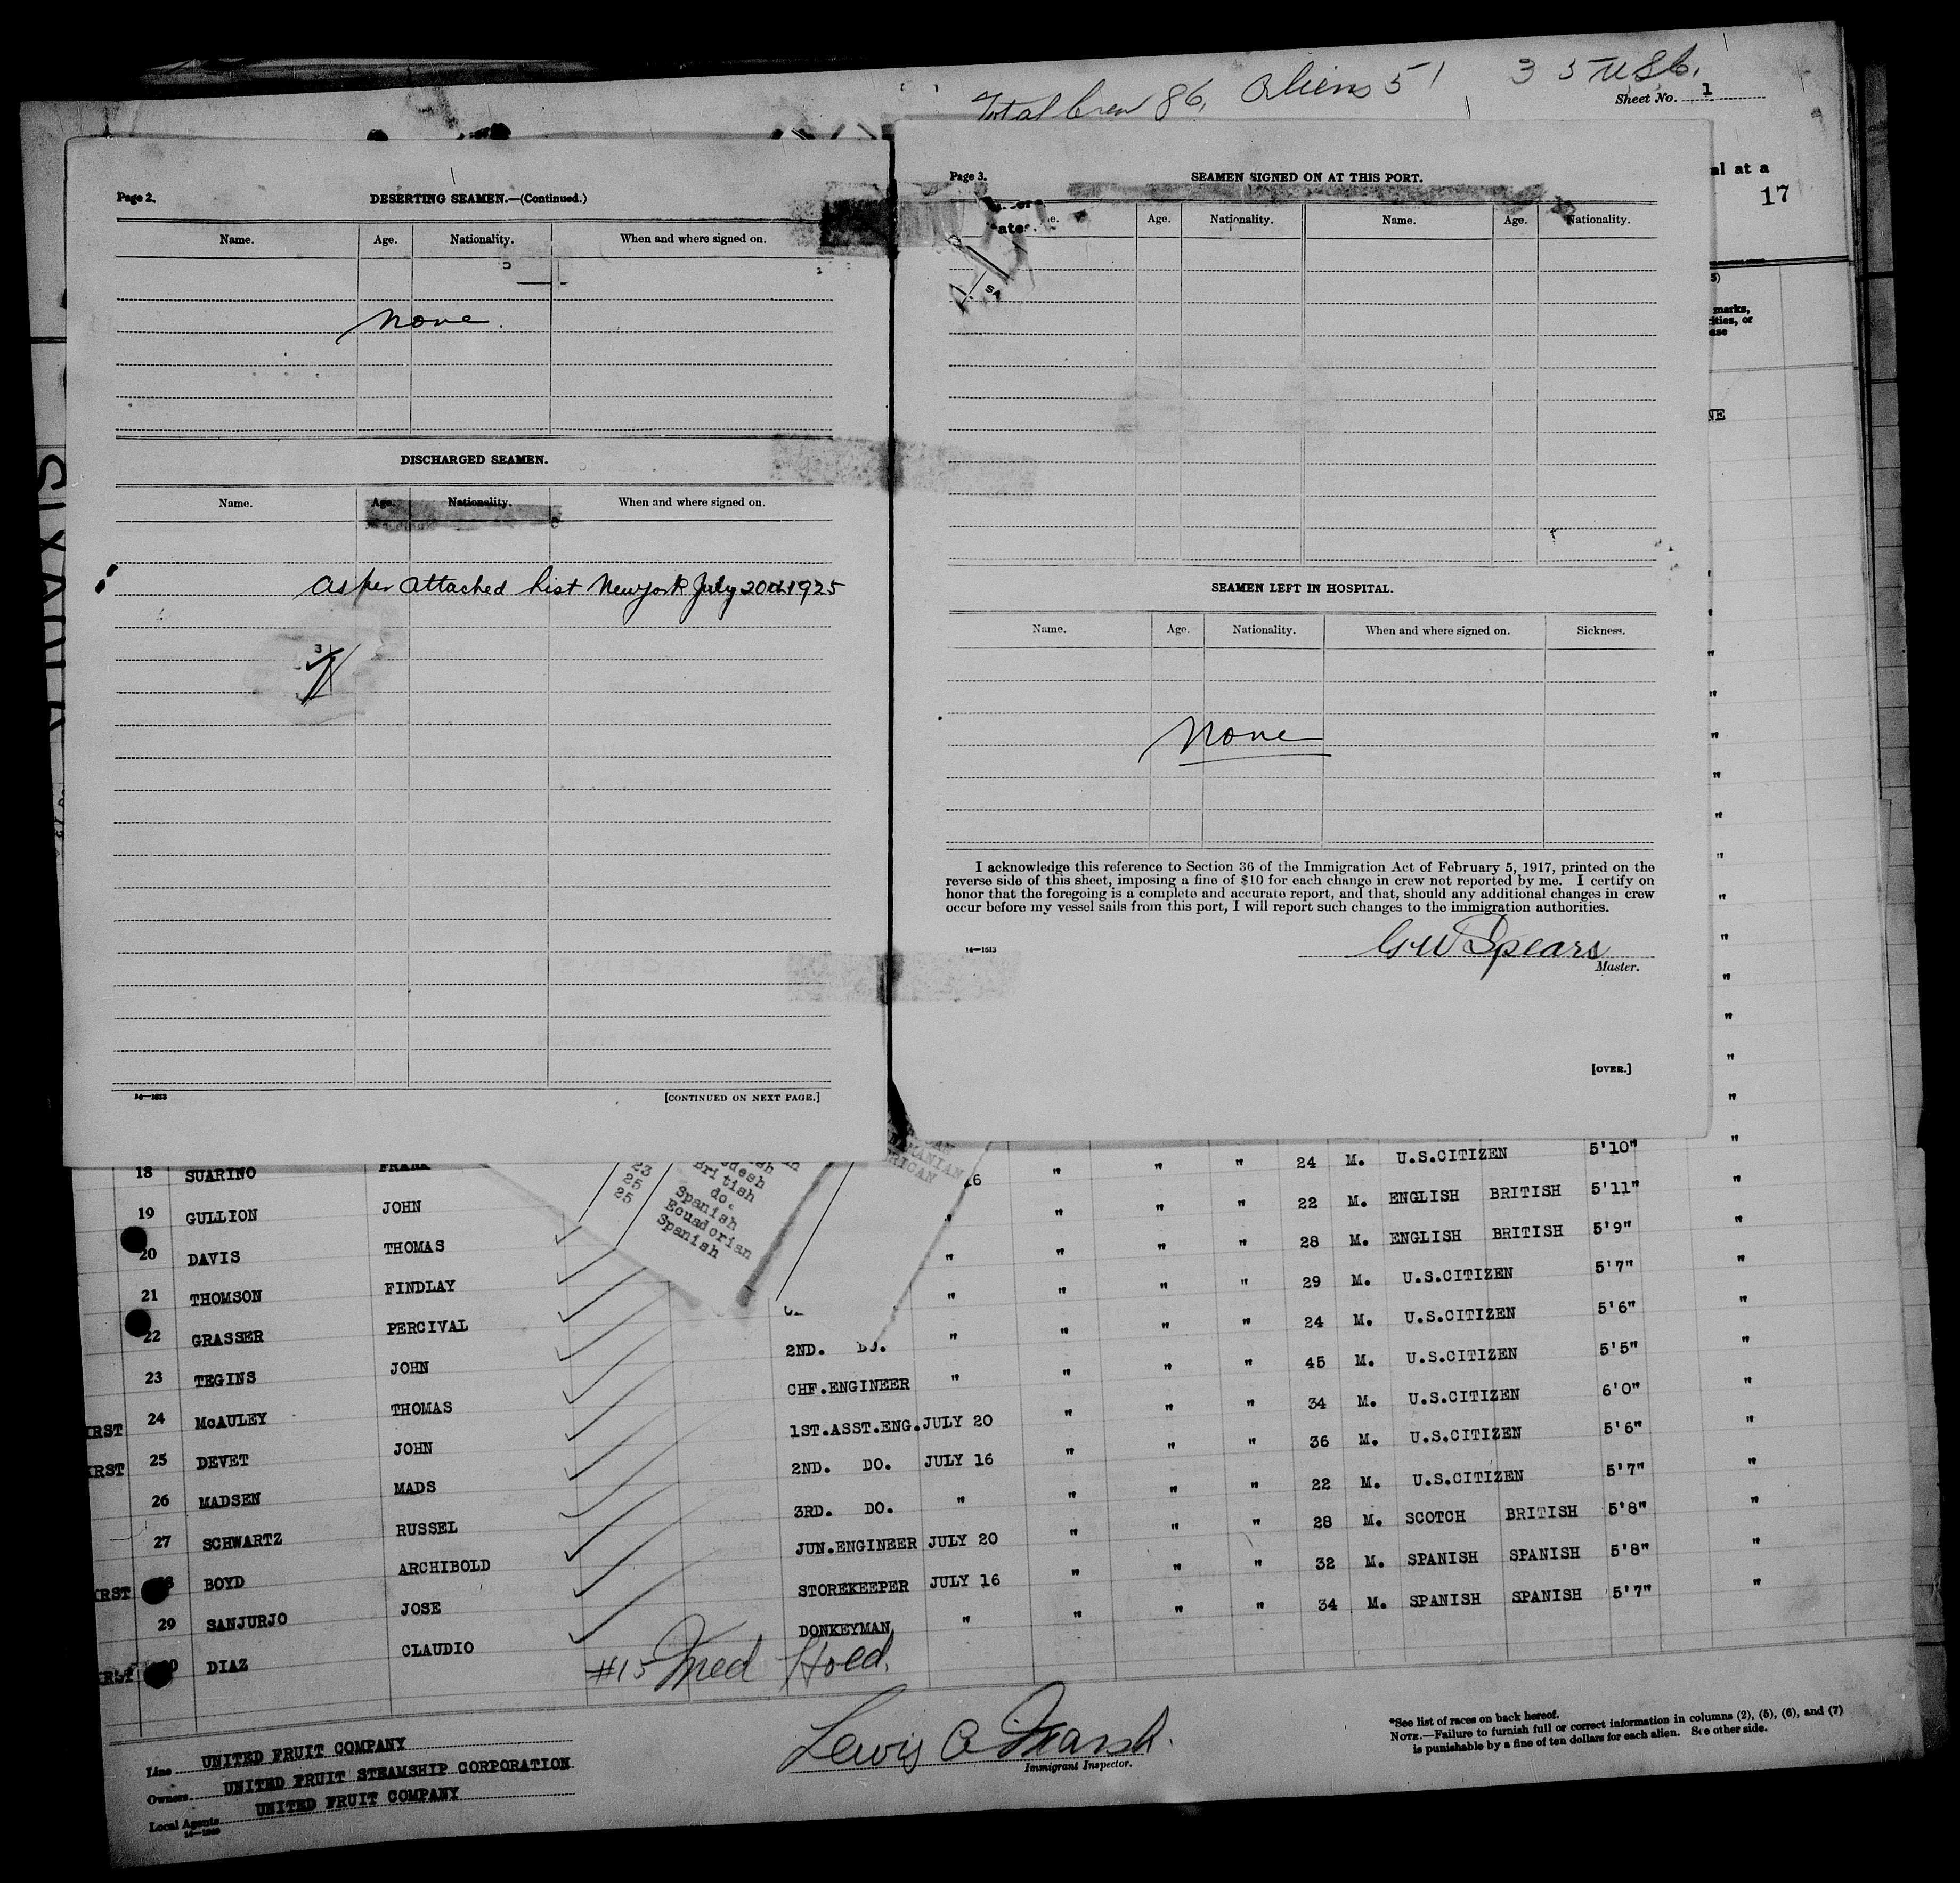 Total Crew 86, Aliens 51 35 USC.
Sheet No. 1
al at a
17
Page 2.
DESERTING SEAMEN.—(Continued.)
Name. Age. Nationality. When and where signed on.
None.
DISCHARGED SEAMEN.
Name. Age. Nationality. When and where signed on.
As per attached list New York July 20th 1925
3
14—1513
[CONTINUED ON NEXT PAGE.]
Page 3.
SEAMEN SIGNED ON AT THIS PORT.
Age. Nationality. Name. Age. Nationality.
SEAMEN LEFT IN HOSPITAL.
Name. Age. Nationality. When and where signed on. Sickness.
None
I acknowledge this reference to Section 36 of the Immigration Act of February 5, 1917, printed on the
reverse side of this sheet, imposing a fine of $10 for each change in crew not reported by me. I certify on
honor that the foregoing is a complete and accurate report, and that, should any additional changes in crew
occur before my vessel sails from this port, I will report such changes to the immigration authorities.
14—1513
GW Spears
Master.
[OVER.]
marks,
NE
23
25
25
British
do.
Spanish
Ecuadorian
Spanish
18 SUARINO FRANK " " " 24 M. U.S.CITIZEN 5'10" "
19 GULLION JOHN " " " " 22 M. ENGLISH BRITISH 5'11" "
20 DAVIS THOMAS " " " " 28 M. ENGLISH BRITISH 5'9" "
21 THOMSON FINDLAY " " " " 29 M. U.S.CITIZEN 5'7" "
22 GRASSER PERCIVAL 2ND. DO. " " " " 24 M. U.S.CITIZEN 5'6" "
23 TEGINS JOHN CHF.ENGINEER " " " " 45 M. U.S.CITIZEN 5'5" "
RST 24 McAULEY THOMAS 1ST.ASST.ENG. JULY 20 " " " 34 M. U.S.CITIZEN 6'0" "
RST 25 DEVET JOHN 2ND. DO. JULY 16 " " " 36 M. U.S.CITIZEN 5'6" "
26 MADSEN MADS 3RD. DO. " " " " 22 M. U.S.CITIZEN 5'7" "
27 SCHWARTZ RUSSEL JUN.ENGINEER JULY 20 " " " 28 M. SCOTCH BRITISH 5'8" "
RST BOYD ARCHIBOLD STOREKEEPER JULY 16 " " " 32 M. SPANISH SPANISH 5'8" "
29 SANJURJO JOSE DONKEYMAN " " " " 34 M. SPANISH SPANISH 5'7" "
RST DIAZ CLAUDIO
#15 Med Hold.
Line UNITED FRUIT COMPANY
Owners UNITED FRUIT STEAMSHIP CORPORATION
Local Agents UNITED FRUIT COMPANY
Immigrant Inspector.
*See list of races on back hereof.
NOTE.—Failure to furnish full or correct information in columns (2), (5), (6), and (7)
is punishable by a fine of ten dollars for each alien. See other side.